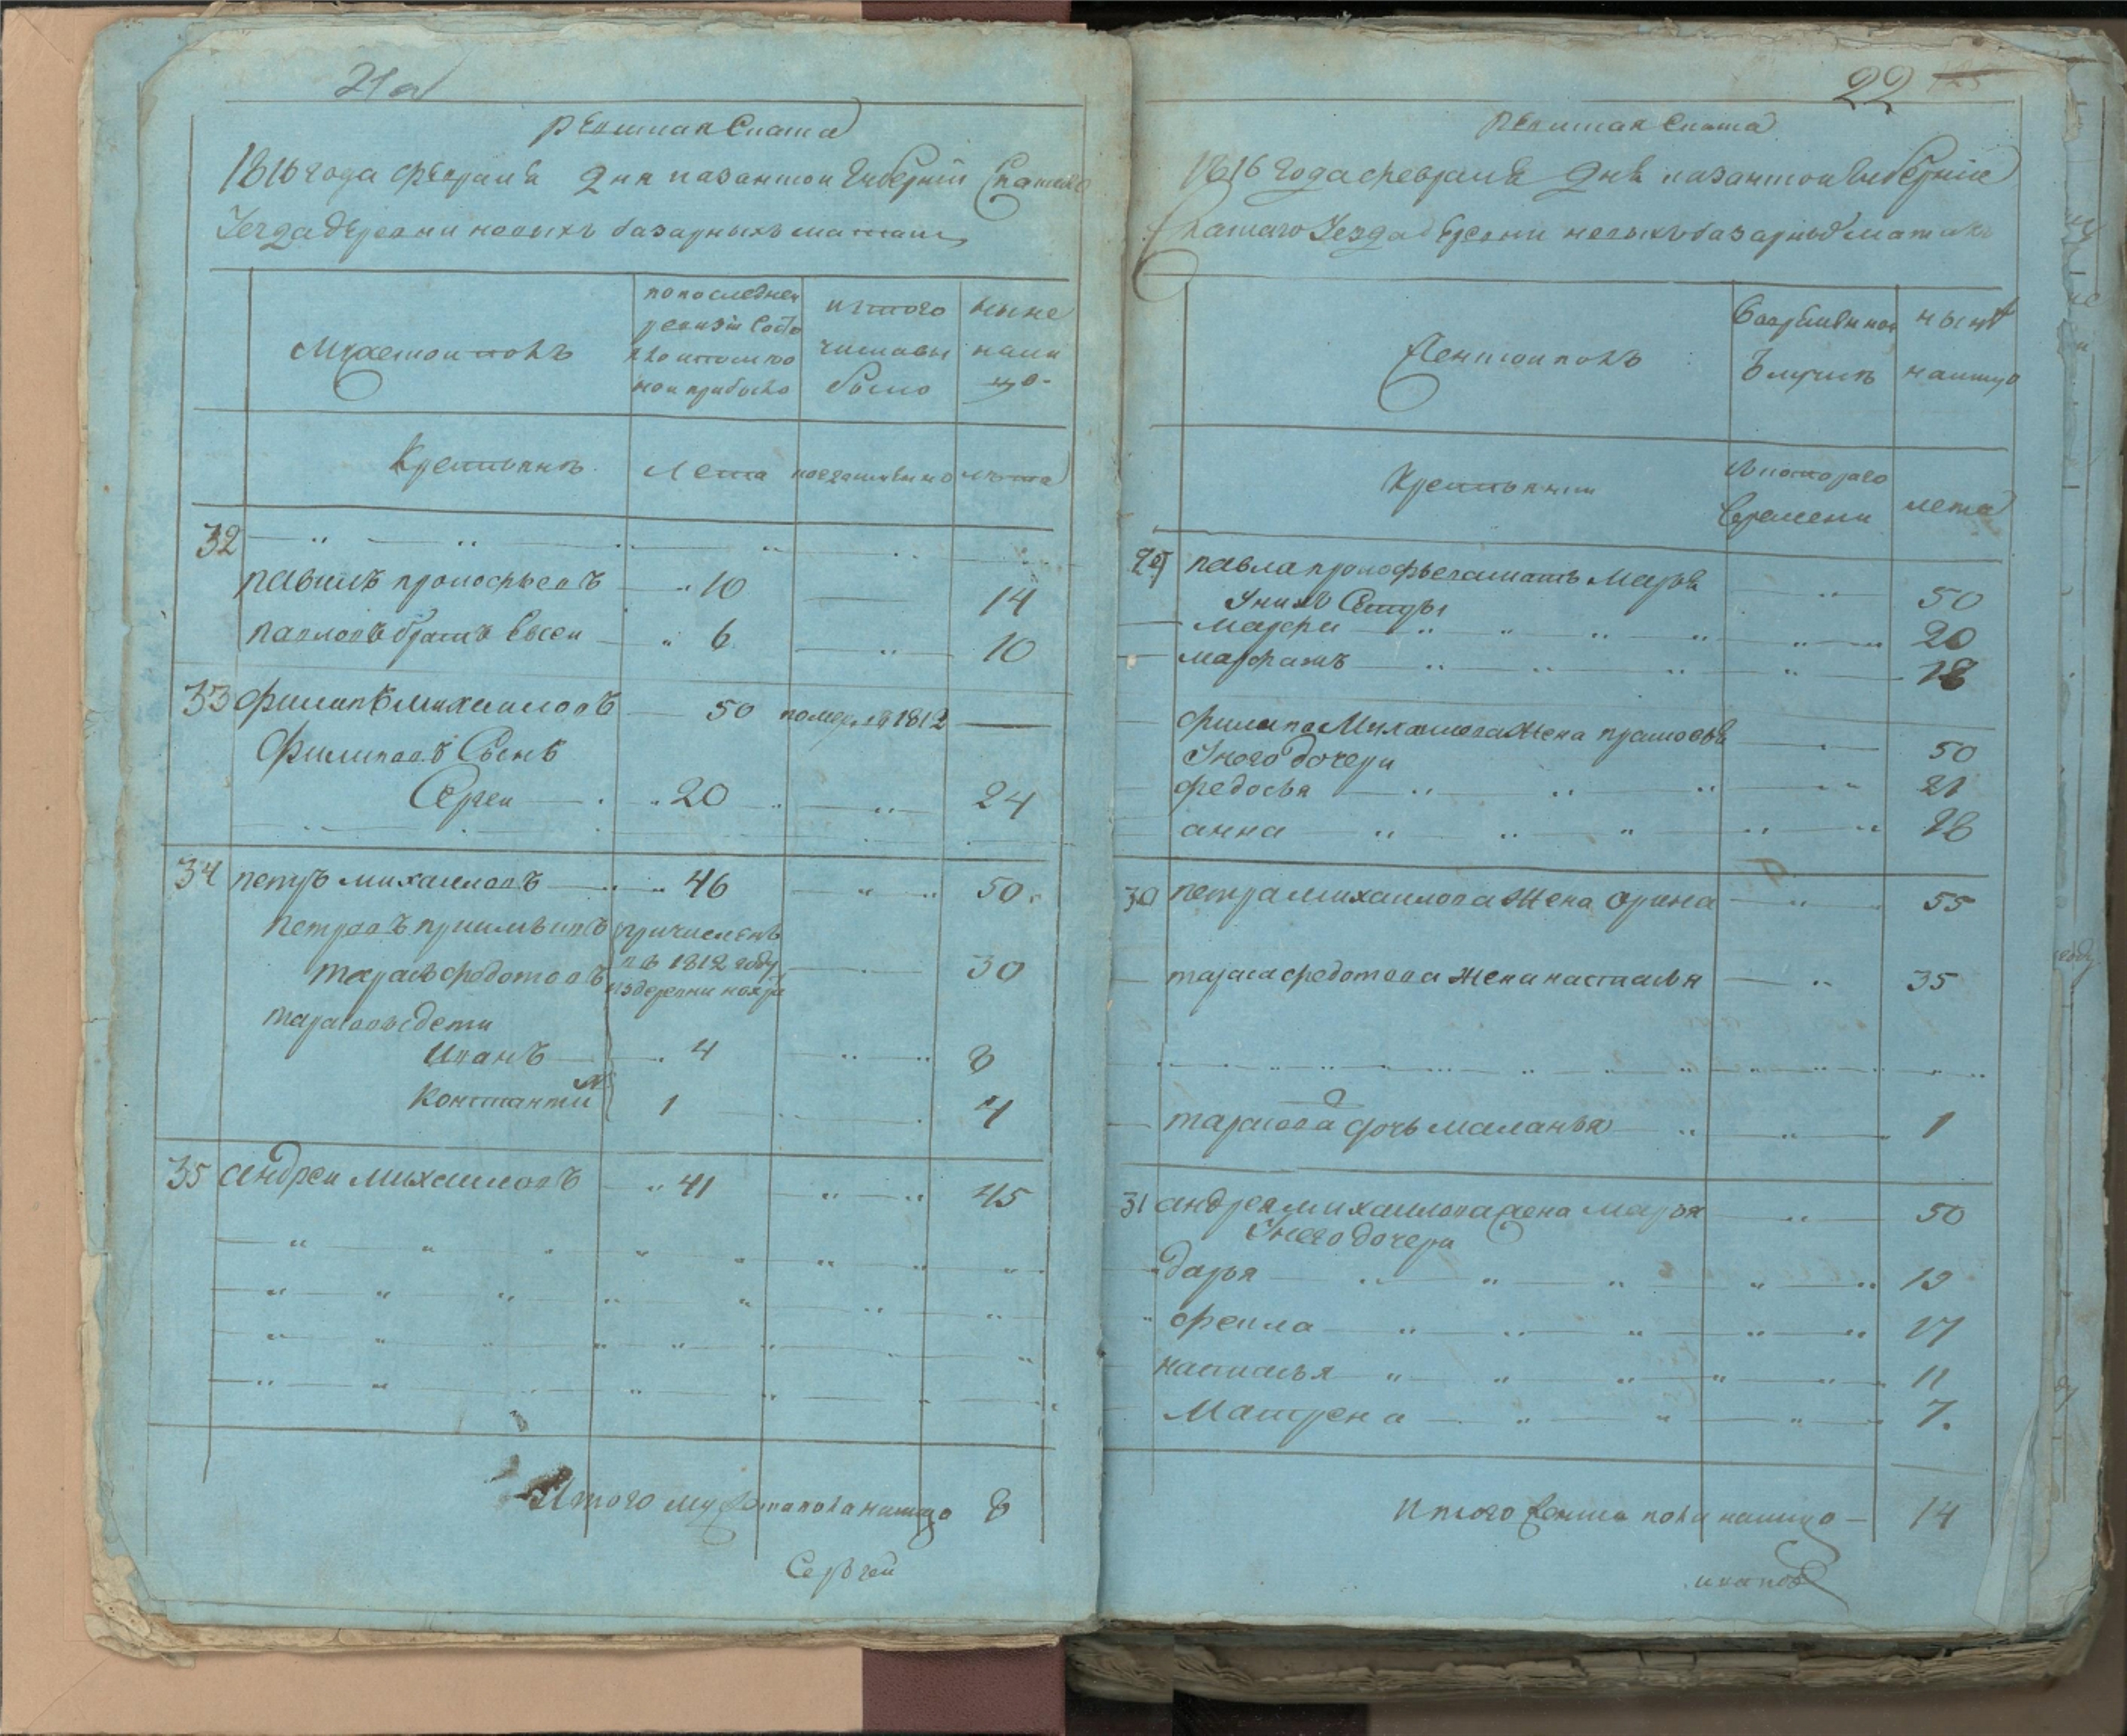 21а
Ревиская Скаска
1816 года февраля 2 дня казанской губерніи Спаскаго
Уезда деревни новыхъ базарныхъ матакъ
Мужеской полъ
по последней
ревизіи состо
яло и после то
во прибыло
ис того
числа вы
было
ныне
нали
цо
Крестьянъ
Лета
когда имянно
лета
32
павилъ прокофьевъ 10 14
павловъ братъ Евсей 6 10
33 филипъ михаиловъ 50 помер въ 1812
филиповъ Сынъ
Сергеи 20 24
34 петръ михаиловъ 46 50
петровъ приимышъ причисленъ
тарасъ федотовъ въ 1812 году 30
из деревни
тарасовы дети
Иванъ 4 8
Константи 1 4
35 андреи михаиловъ 41 45
Итого мужеска пола налицо 8
Сергей
22 125
Ревиская Скаска
1816 года февраля 2 дня казанской губерніи
Спаскаго Уезда деревни новыхъ базарныхъ матакъ
Женской полъ
Во временной
отлучкѣ
нынѣ
налицо
Крестьянки
С котораго
времени
лета
29 павла прокофьева мать Марья 50
У нихъ Сестры
Марфа 20
18
филипа Михаилова жена прасковья 50
У него дочери
федосья 21
анна 16
30 петра михаилова жена орина 55
тараса федотова жена настасья 35
тарасова дочь маланья 1
31 андрея михаилова жена марья 50
У него дочери
дарья 19
фекла 17
настасья 11
Матрена 7.
Итого женска пола налицо 14
ивановъ